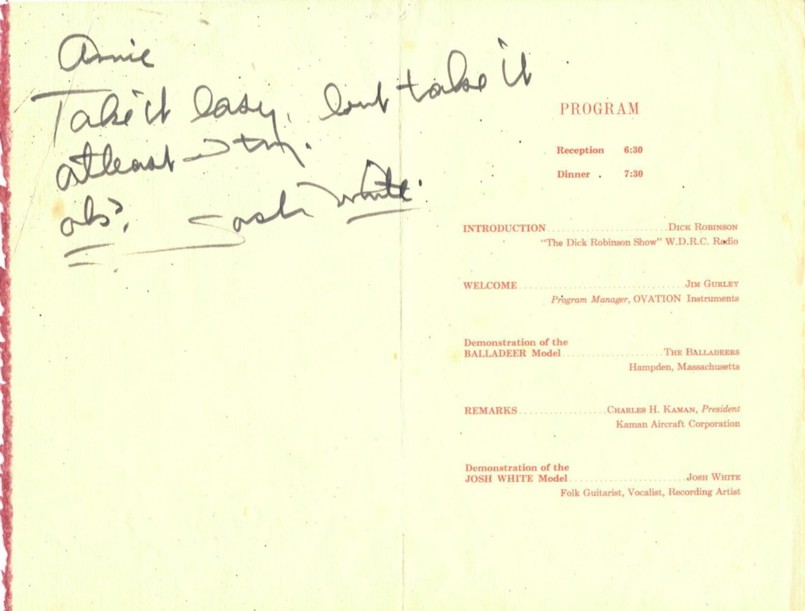 Annie
Take it easy, but take it
at least try.
Josh White.
PROGRAM
Reception 6:30
Dinner . 7:30
INTRODUCTION DICK ROBINSON
"The Dick Robinson Show" W.D.R.C. Radio
WELCOME JIM GURLEY
Program Manager, OVATION Instruments
Demonstration of the
BALLADEER Model THE BALLADEERS
Hampden, Massachusetts
REMARKS CHARLES H. KAMAN, President
Kaman Aircraft Corporation
Demonstration of the
JOSH WHITE Model JOSH WHITE
Folk Guitarist, Vocalist, Recording Artist